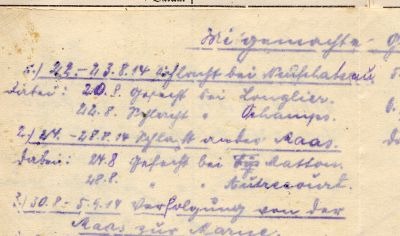 Mitgemachte G
1.) 22.-23.8.14 Schlacht bei Neufchateau
dabei: 20.8. Gefecht bei Longlier.
22.8. Schlacht " Ochamps.
2.) 24.-28.8.14 Schlacht an der Maas.
dabei: 24.8 Gefecht bei Matton.
28.8. " " Autrecourt.
3.) 30.8.-5.9.14 Verfolgung von der
Maas zur Marne.